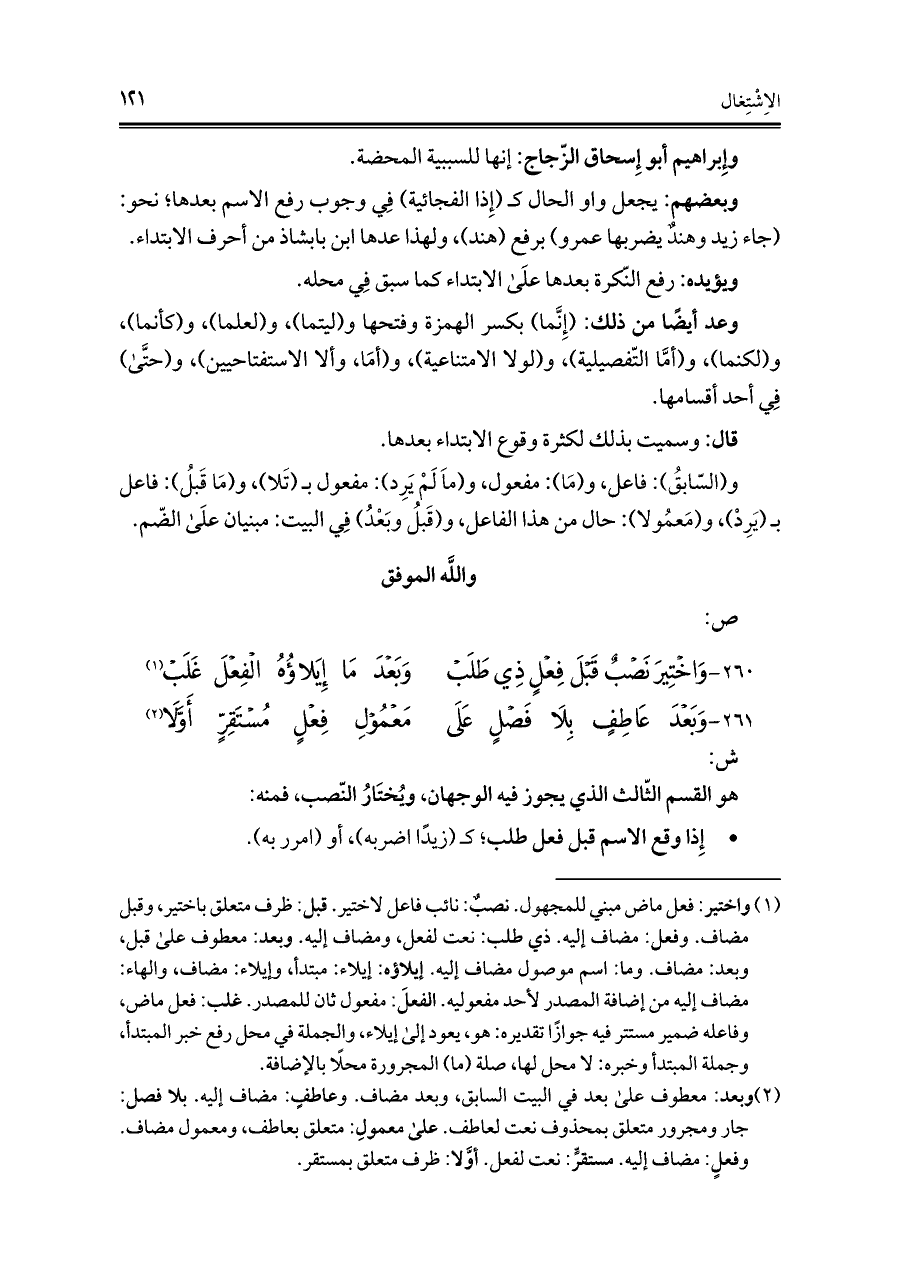 الاِشْتِغال ١٢١
وإبراهيم أبو إسحاق الزّجاج: إنها للسببية المحضة.
وبعضهم: يجعل واو الحال كـ (إذا الفجائية) فِي وجوب رفع الاسم بعدها؛ نحو:
(جاء زيد وهندٌ يضربها عمرو) برفع (هند)، ولهذا عدها ابن بابشاذ من أحرف الابتداء.
ويؤيده: رفع النّكرة بعدها علَىٰ الابتداء كما سبق فِي محله.
وعد أيضًا من ذلك: (إِنَّما) بكسر الهمزة وفتحها و(ليتما)، و(لعلما)، و(كأنما)،
و(لكنما)، و(أمَّا التّفصيلية)، و(لولا الامتناعية)، و(أمَا، وألا الاستفتاحيين)، و(حتَّىٰ)
فِي أحد أقسامها.
قال: وسميت بذلك لكثرة وقوع الابتداء بعدها.
و(السّابقُ): فاعل، و(مَا): مفعول، و(ماَ لَمْ يَرِد): مفعول بـ (تَلا)، و(مَا قَبلُ): فاعل
بـ (يَرِدْ)، و(مَعمُولا): حال من هذا الفاعل، و(قَبلُ وبَعْدُ) فِي البيت: مبنيان علَىٰ الضّم.
واللَّه الموفق
ص:
٢٦٠-وَاخْتِيرَ نَصْبٌ قَبْلَ فِعْلٍ ذِي طَلَبْ وَبَعْدَ مَا إِيَلاؤُهُ الْفِعْلَ غَلَبْ(١)
٢٦١-وَبَعْدَ عَاطِفٍ بِلَا فَصْلٍ عَلَى مَعْمُوْلِ فِعْلٍ مُسْتَقِرٍّ أَوَّلَا(٢)
ش:
هو القسم الثّالث الذي يجوز فيه الوجهان، ويُختَارُ النّصب، فمنه:
• إذا وقع الاسم قبل فعل طلب؛ كـ (زيدًا اضربه)، أو (امرر به).
(١) واختير: فعل ماض مبني للمجهول. نصبٌ: نائب فاعل لاختير. قبل: ظرف متعلق باختير، وقبل
مضاف. وفعل: مضاف إليه. ذي طلب: نعت لفعل، ومضاف إليه. وبعد: معطوف علىٰ قبل،
وبعد: مضاف. وما: اسم موصول مضاف إليه. إيلاؤه: إيلاء: مبتدأ، وإيلاء: مضاف، والهاء:
مضاف إليه من إضافة المصدر لأحد مفعوليه. الفعلَ: مفعول ثان للمصدر. غلب: فعل ماض،
وفاعله ضمير مستتر فيه جوازًا تقديره: هو، يعود إلىٰ إيلاء، والجملة في محل رفع خبر المبتدأ،
وجملة المبتدأ وخبره: لا محل لها، صلة (ما) المجرورة محلًا بالإضافة.
(٢)وبعد: معطوف علىٰ بعد في البيت السابق، وبعد مضاف. وعاطفٍ: مضاف إليه. بلا فصل:
جار ومجرور متعلق بمحذوف نعت لعاطف. علىٰ معمولِ: متعلق بعاطف، ومعمول مضاف.
وفعلٍ: مضاف إليه. مستقرٍّ: نعت لفعل. أوَّلا: ظرف متعلق بمستقر.